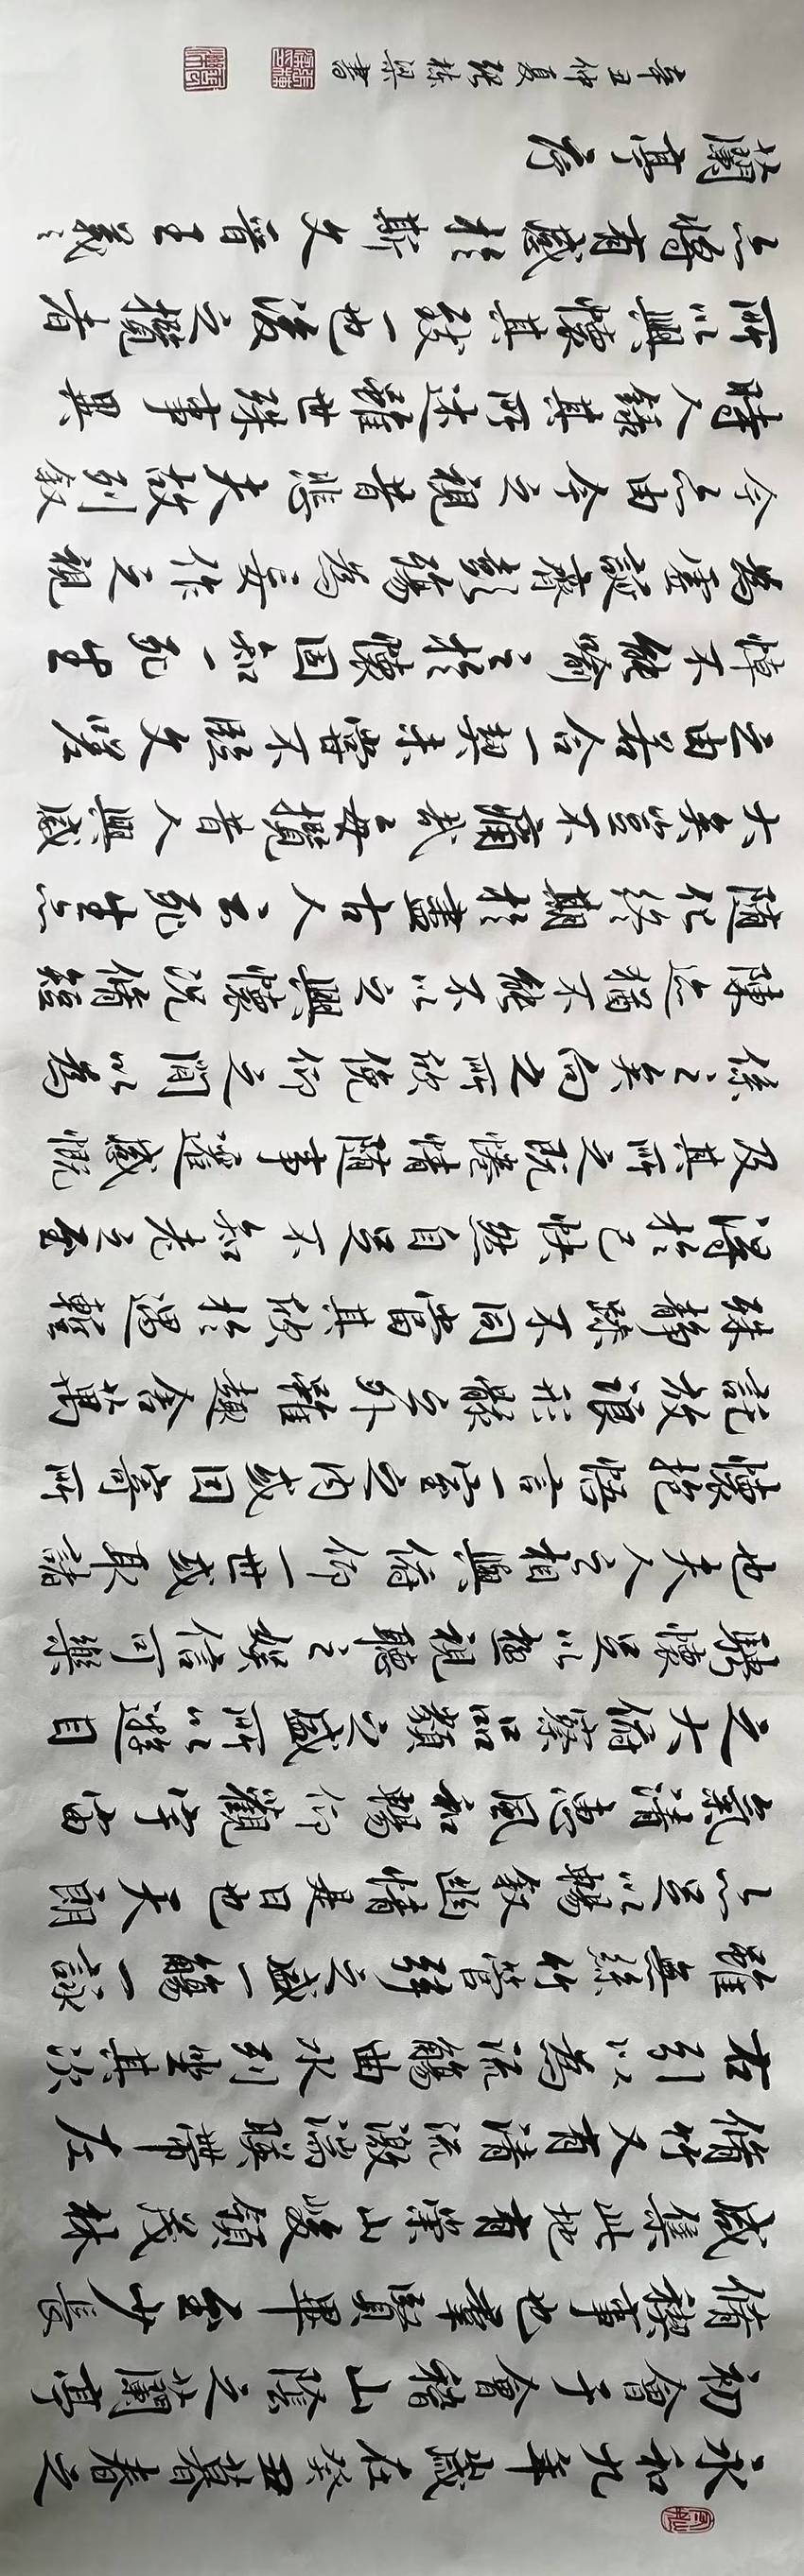 永和九年歲在癸丑暮春之
初會于會稽山陰之蘭亭
脩禊事也羣賢畢至少長
咸集此地有崇山峻領茂林
脩竹又有清流激湍暎帶左
右引以為流觴曲水列坐其次
雖無絲竹管絃之盛一觴一詠
亦足以暢敘幽情是日也天朗
氣清惠風和暢仰觀宇宙
之大俯察品類之盛所以遊目
騁懷足以極視聽之娛信可樂
也夫人之相與俯仰一世或取諸
懷抱悟言一室之內或因寄所
託放浪形骸之外雖趣舍萬
殊靜躁不同當其欣於遇蹔
得於己快然自足不知老之至
及其所之既惓情隨事遷感慨
係之矣向之所欣俛仰之間以為
陳迹猶不能不以之興懷況脩短
隨化終期於盡古人云死生亦
大矣豈不痛哉每攬昔人興感
之由若合一契未嘗不臨文嗟
悼不能喻之於懷固知一死生
為虛誕齊彭殤為妄作之視
今亦由今之視昔悲夫故列敘
時人錄其所述雖世殊事異
所以興懷其致一也後之攬者
亦將有感於斯文晉王羲之
蘭亭序
辛丑仲夏張棟梁書